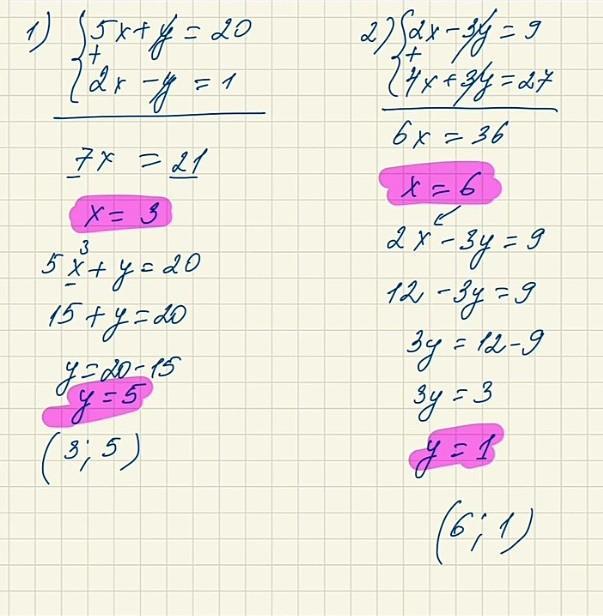 1) { 5x + y = 20
+
2x - y = 1
7x = 21
x = 3
3
5x + y = 20
15 + y = 20
y = 20 - 15
y = 5
(3; 5)
2) { 2x - 3y = 9
+
4x + 3y = 27
6x = 36
x = 6
2x - 3y = 9
12 - 3y = 9
3y = 12 - 9
3y = 3
y = 1
(6; 1)